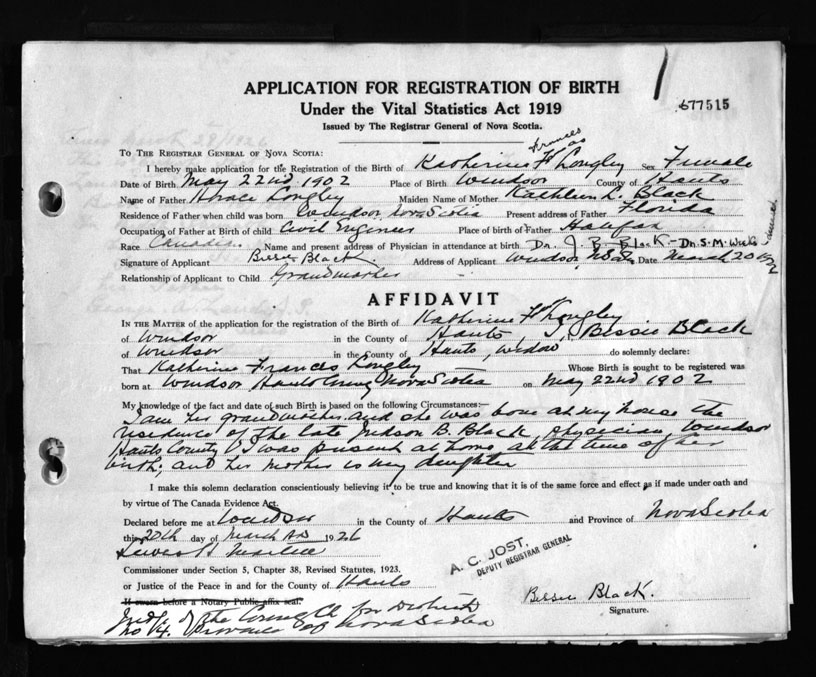 APPLICATION FOR REGISTRATION OF BIRTH
Under the Vital Statistics Act 1919
Issued by The Registrar General of Nova Scotia.
677515
Frances
TO THE REGISTRAR GENERAL OF NOVA SCOTIA:
I hereby make application for the Registration of the Birth of Katherine F Longley Sex Female
Date of Birth May 22nd 1902 Place of Birth Windsor County of Hants
Name of Father Horace Longley Maiden Name of Mother Kathleen L. Black
Residence of Father when child was born Windsor, Nova Scotia Present address of Father Florida
Occupation of Father at Birth of child Civil Engineer Place of birth of Father Halifax
Race Canadian Name and present address of Physician in attendance at birth Dr. J. B. Black - Dr. S. M. Weeks
Signature of Applicant Bessie Black Address of Applicant Windsor N.S. Date March 20
Relationship of Applicant to Child Grandmother
AFFIDAVIT
IN THE MATTER of the application for the registration of the Birth of Katherine F Longley
of Windsor in the County of Hants I, Bessie Black
of Windsor in the County of Hants, Widow do solemnly declare:
That Katherine Frances Longley Whose Birth is sought to be registered was
born at Windsor Hants County Nova Scotia on May 22nd 1902
My knowledge of the fact and date of such Birth is based on the following Circumstances:—
I am her grandmother and she was born at my house the
residence of the late Judson B. Black, physician, Windsor
Hants County I was present at home at the time of her
birth; and her mother is my daughter
I make this solemn declaration conscientiously believing it to be true and knowing that it is of the same force and effect as if made under oath and
by virtue of The Canada Evidence Act.
Declared before me at Windsor in the County of Hants and Province of Nova Scotia
this 20th day of March AD 1926
Commissioner under Section 5, Chapter 38, Revised Statutes, 1923.
or Justice of the Peace in and for the County of Hants
A. C. JOST,
DEPUTY REGISTRAR GENERAL
If sworn before a Notary Public affix seal.
Bessie Black.
Signature.
Judge of the County Ct for District
No 4. Province of Nova Scotia